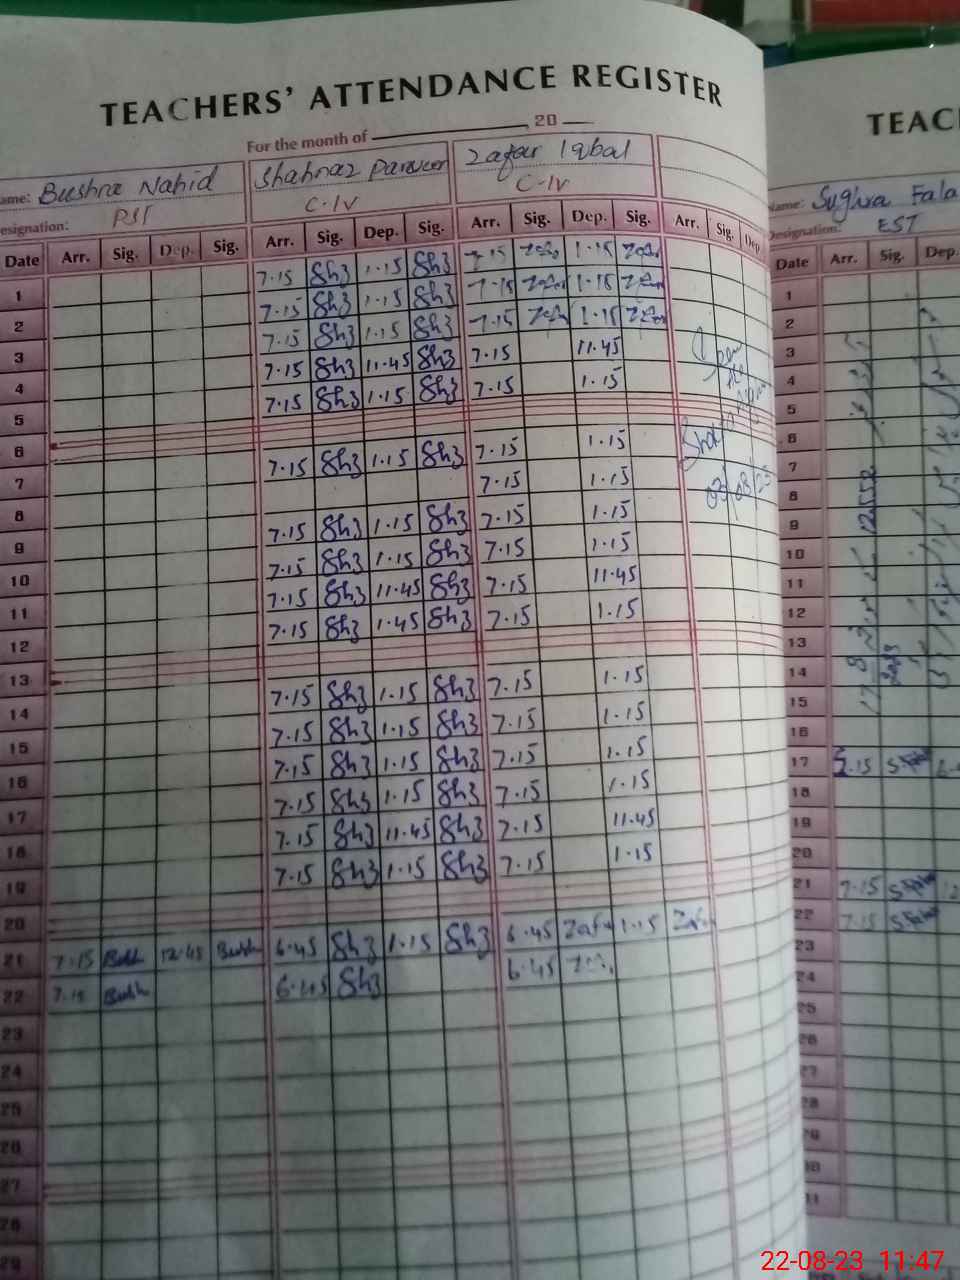 TEACHERS' ATTENDANCE REGISTER
For the month of 20
Name: Bushra Nahid Shahnaz Parveen Zafar Iqbal
Designation: PST C-IV C-IV
Date Arr. Sig. Dep. Sig. Arr. Sig. Dep. Sig. Arr. Sig. Dep. Sig. Arr. Sig. Dep.
1 7.15 Sh3 1.15 Sh3 7.15 Zafar 1.15 Zafar
2 7.15 Sh3 1.15 Sh3 7.15 Zafar 1.15 Zafar
3 7.15 Sh3 1.15 Sh3 7.15 Zafar 1.15 Zafar
4 7.15 Sh3 11.45 Sh3 7.15 11.45
5 7.15 Sh3 1.15 Sh3 7.15 1.15
6
7 7.15 Sh3 1.15 Sh3 7.15 1.15
8 7.15 1.15
9 7.15 Sh3 1.15 Sh3 7.15 1.15
10 7.15 Sh3 1.15 Sh3 7.15 1.15
11 7.15 Sh3 11.45 Sh3 7.15 11.45
12 7.15 Sh3 1.45 Sh3 7.15 1.15
13
14 7.15 Sh3 1.15 Sh3 7.15 1.15
15 7.15 Sh3 1.15 Sh3 7.15 1.15
16 7.15 Sh3 1.15 Sh3 7.15 1.15
17 7.15 Sh3 1.15 Sh3 7.15 1.15
18 7.15 Sh3 11.45 Sh3 7.15 11.45
19 7.15 Sh3 1.15 Sh3 7.15 1.15
20
21 7.15 Bush 12.45 Bush 6.45 Sh3 1.15 Sh3 6.45 Zafar 1.15 Zafar
22 7.15 Bush 6.45 Sh3 6.45
23
24
25
26
27
28
29
TEAC
Name: Sughra Fala
Designation: EST
Date Arr. Sig. Dep.
1
2
3
4
5
6
7
8
9
10
11
12
13
14
15
16
17 7.15
18
19
20
21 7.15
22 7.15
23
24
25
26
27
28
22-08-23 11:47